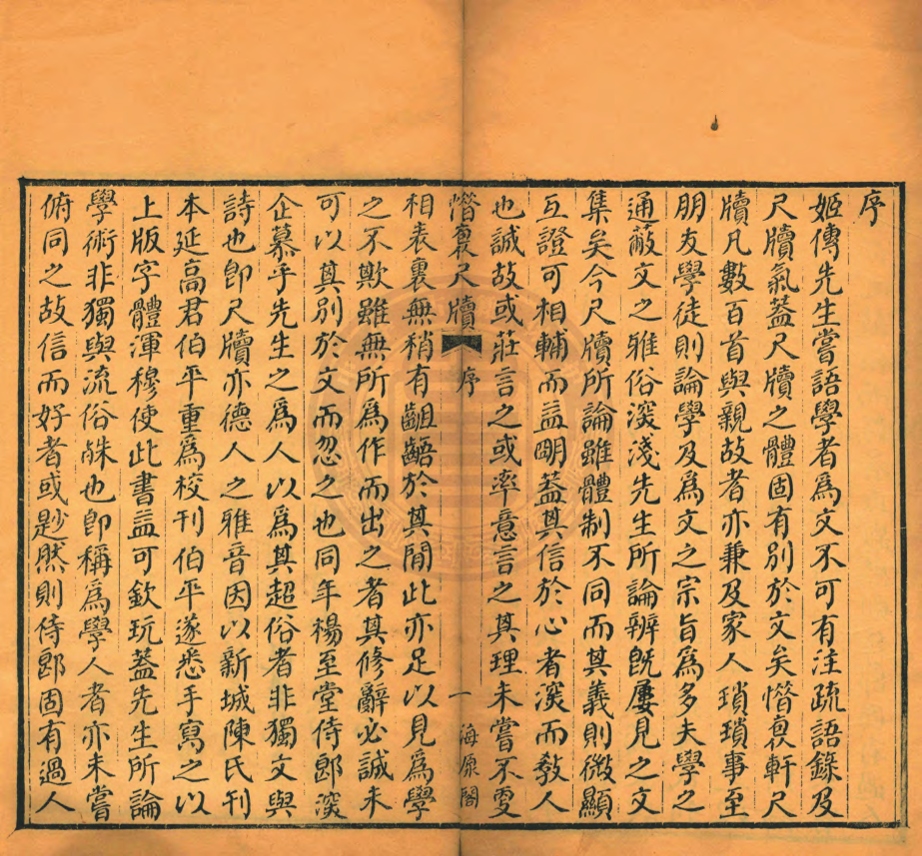 序
姬傳先生嘗語學者為文不可有注疏語錄及
尺牘氣蓋尺牘之體固有別於文矣惜㫐軒尺
牘凡數百首與親故者亦兼及家人瑣瑣事至
朋友學徒則論學及為文之宗旨為多夫學之
通蔽文之雅俗深淺先生所論辨旣屢見之文
集矣今尺牘所論雖體制不同而其義則微顯
互證可相輔而益明蓋其信於心者深而教人
也誠故或莊言之或率意言之其理未嘗不
惜
尺牘
序
一
海源閣
相表裏無稍有齟齬於其閒此亦足以見為學
之不欺雖無所為作而出之者其修辭必誠未
可以其別於文而忽之也同年楊至堂侍郎深
企慕乎先生之為人以為其超俗者非獨文與
詩也卽尺牘亦德人之雅音因以新城陳氏刊
本延高君伯平重為校刊伯平遂悉手寫之以
上版字體渾穆使此書益可欽玩蓋先生所論
學術非獨與流俗殊也卽稱為學人者亦未嘗
俯同之故信而好者或尟然則侍郎固有過人